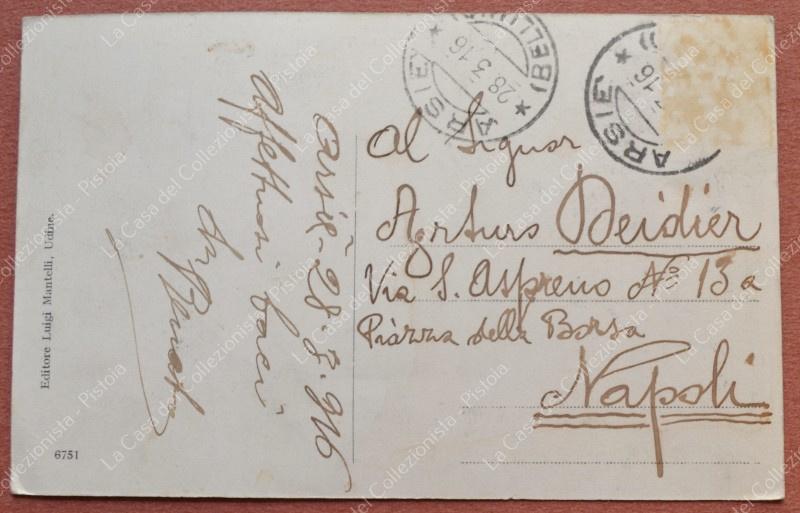 ARSIÈ * (BELLUNO) *
28.3.16
ARSIÈ *
16
Al Signor
Arturo Deidier
Via S. Aspreno No 13 a
Piazza della Borsa
Napoli
Arsiè - 28.3.916
Affettuosi baci
da Renato
Editore Luigi Mantelli, Udine.
6751
La Casa del Collezionista - Pistoia